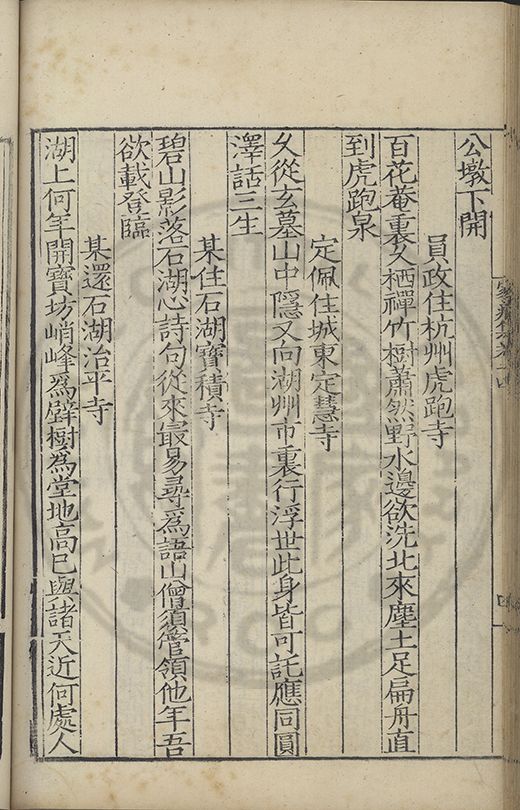 公墩下開
員政住杭州虎跑寺
百花菴裏久栖禪竹樹蕭然野水邊欲洗北來塵土足扁舟直
到虎跑泉
定佩住城東定慧寺
久從玄墓山中隱又向湖州市裏行浮世此身皆可託應同圓
澤話三生
某住石湖寶積寺
碧山影落石湖心詩句從來最易尋為語山僧須管領他年吾
欲載登臨
某還石湖治平寺
湖上何年開寶坊峭峰為壁樹為堂地高已與諸天近何處人